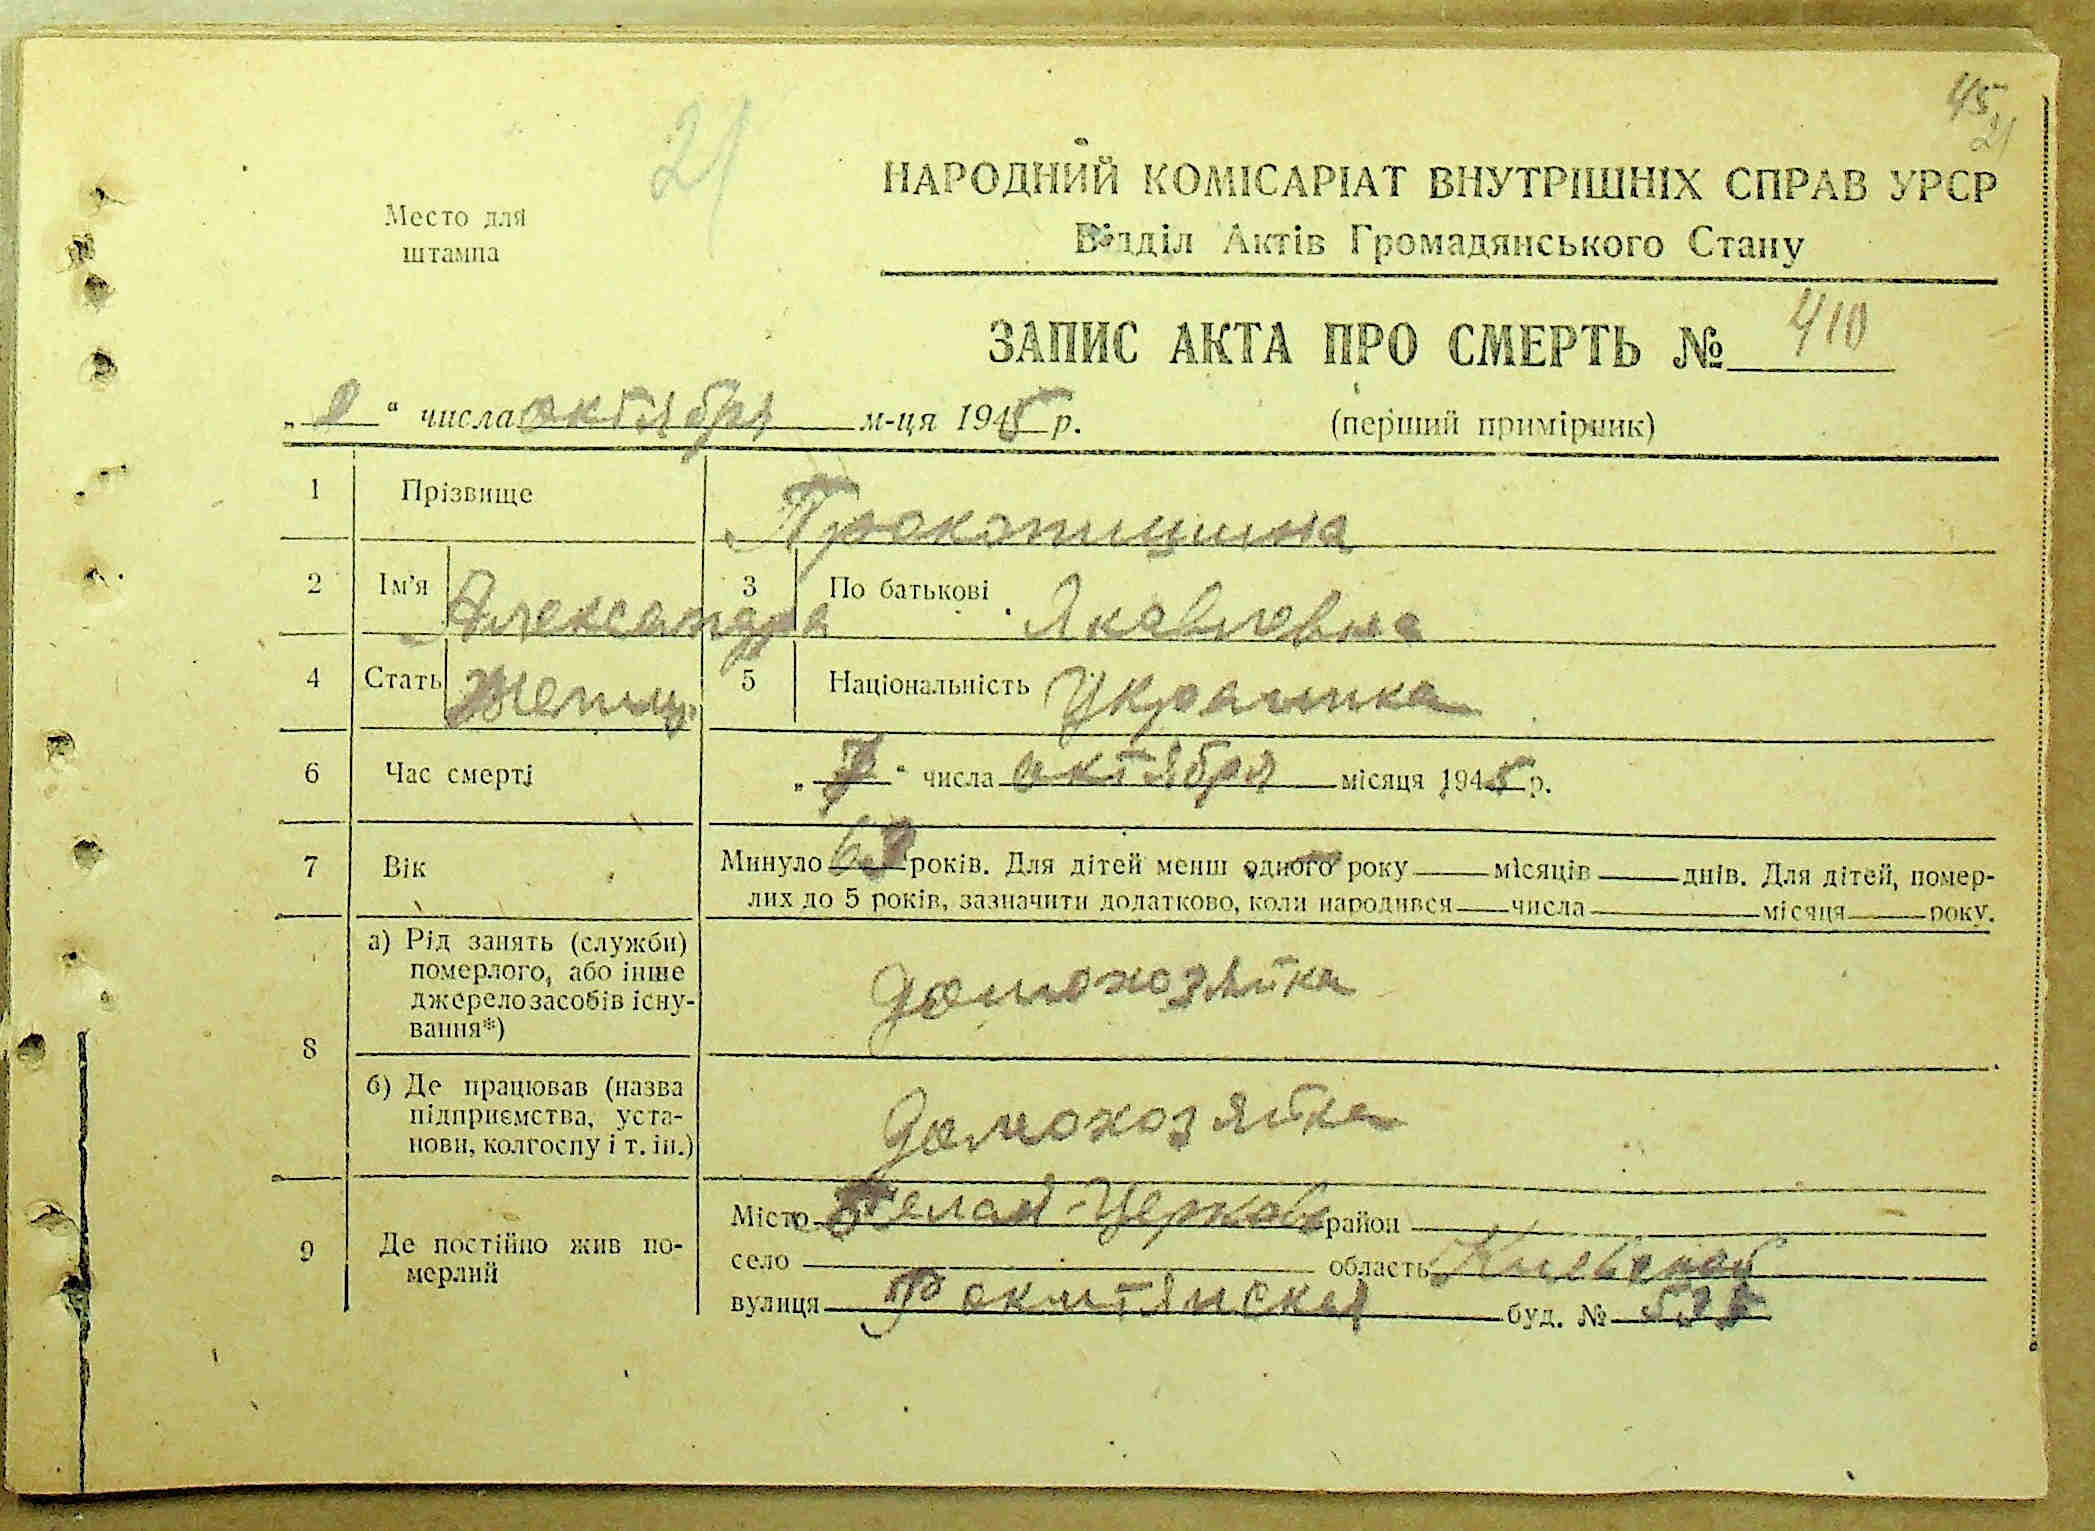 45
21
21
Место для
штампа
НАРОДНИЙ КОМІСАРІАТ ВНУТРІШНІХ СПРАВ УРСР
Відділ Актів Громадянського Стану
ЗАПИС АКТА ПРО СМЕРТЬ № 410
„ “ числа октября м-ця 1945 р. (перший примірник)
1 Прізвище Прокопишина
2 Ім'я Александра 3 По батькові Яковлевна
4 Стать Женщ. 5 Національність Украинка
6 Час смерті „ “ числа октября місяця 1945 р.
7 Вік Минуло років. Для дітей менш одного року місяців днів. Для дітей, помер-
лих до 5 років, зазначити додатково, коли народився числа місяця року.
8 а) Рід занять (служби)
померлого, або інше
джерело засобів існу-
вання*)
домохозяйка
б) Де працював (назва
підприємства, уста-
нови, колгоспу і т. ін.)
домохозяйка
9 Де постійно жив по-
мерлий
Місто Белая-Церковь район
село область Киевской
вулиця Рокитянская буд. №